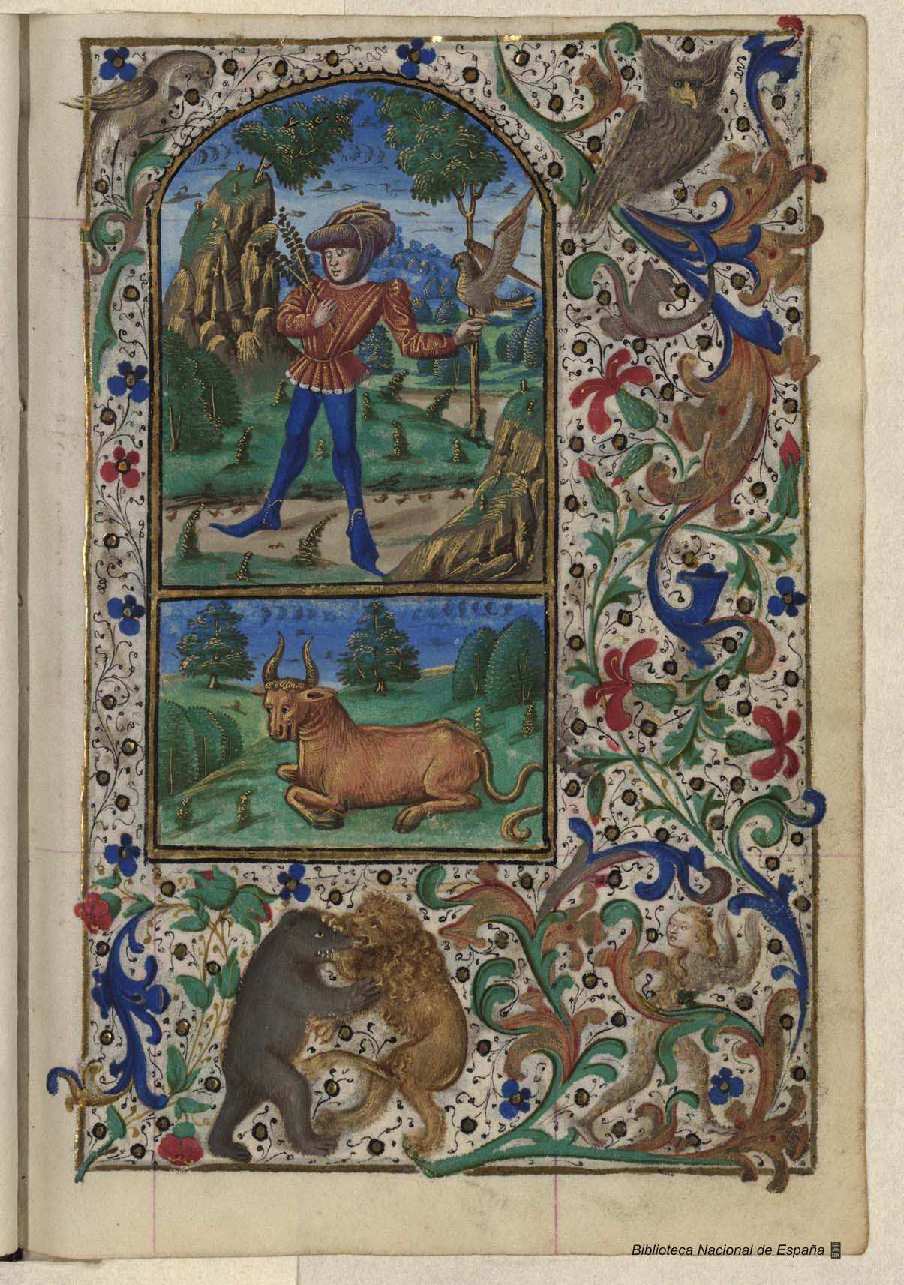 Biblioteca Nacional de España